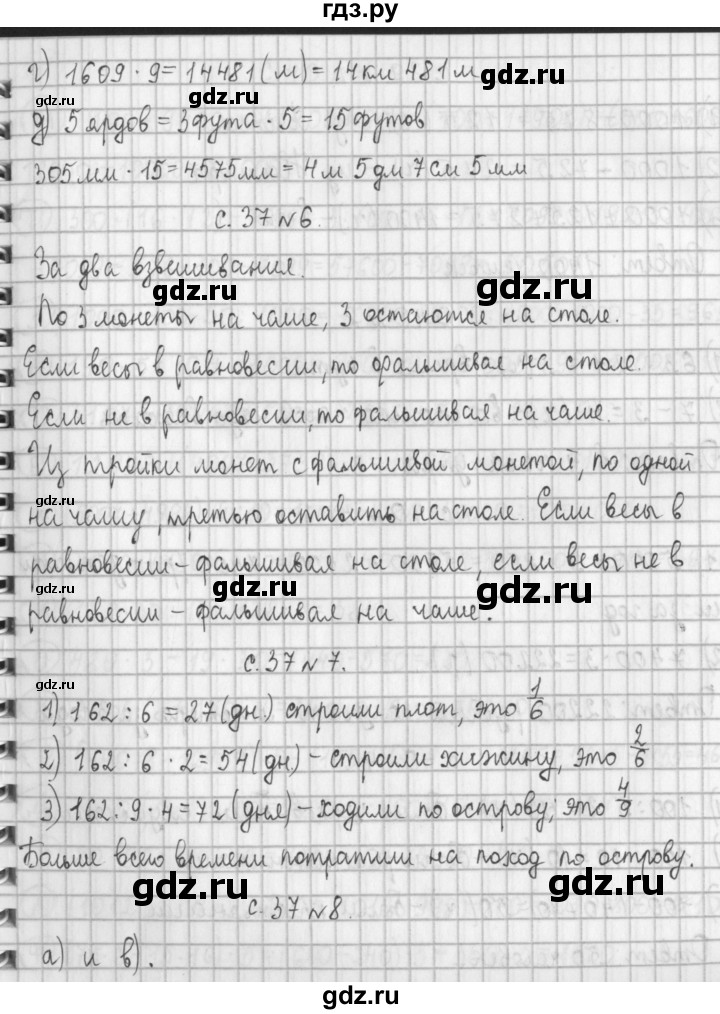 гдз.ру
г) 1609 · 9 = 14481 (м) = 14 км 481 м
gdz.ru
gdz.ru
д) 5 ярдов = 3 фута · 5 = 15 футов
gdz.ru
305 мм · 15 = 4575 мм = 4 м 5 дм 7 см 5 мм
с. 37 № 6.
За два взвешивания.
gdz.ru
gdz.ru
По 3 монеты на чаше, 3 остаются на столе.
Если весы в равновесии, то фальшивая на столе.
gdz.ru
Если не в равновесии, то фальшивая на чаше.
Из тройки монет с фальшивой монетой, по одной
gdz.ru
на чашу, третью оставить на столе. Если весы в
равновесии – фальшивая на столе, если весы не в
gdz.ru
gdz.ru
gdz.ru
равновесии – фальшивая на чаше.
с. 37 № 7.
gdz.ru
1) 162 : 6 = 27 (дн.) строили плот, это 1/6
2) 162 : 6 · 2 = 54 (дн) – строили хижину, это 2/6
gdz.ru
gdz.ru
3) 162 : 9 · 4 = 72 (дня) – ходили по острову, это 4/9
Больше всего времени потратили на поход по острову.
gdz.ru
gdz.ru
с. 37 № 8.
gdz.ru
а) и в).
gdz.ru